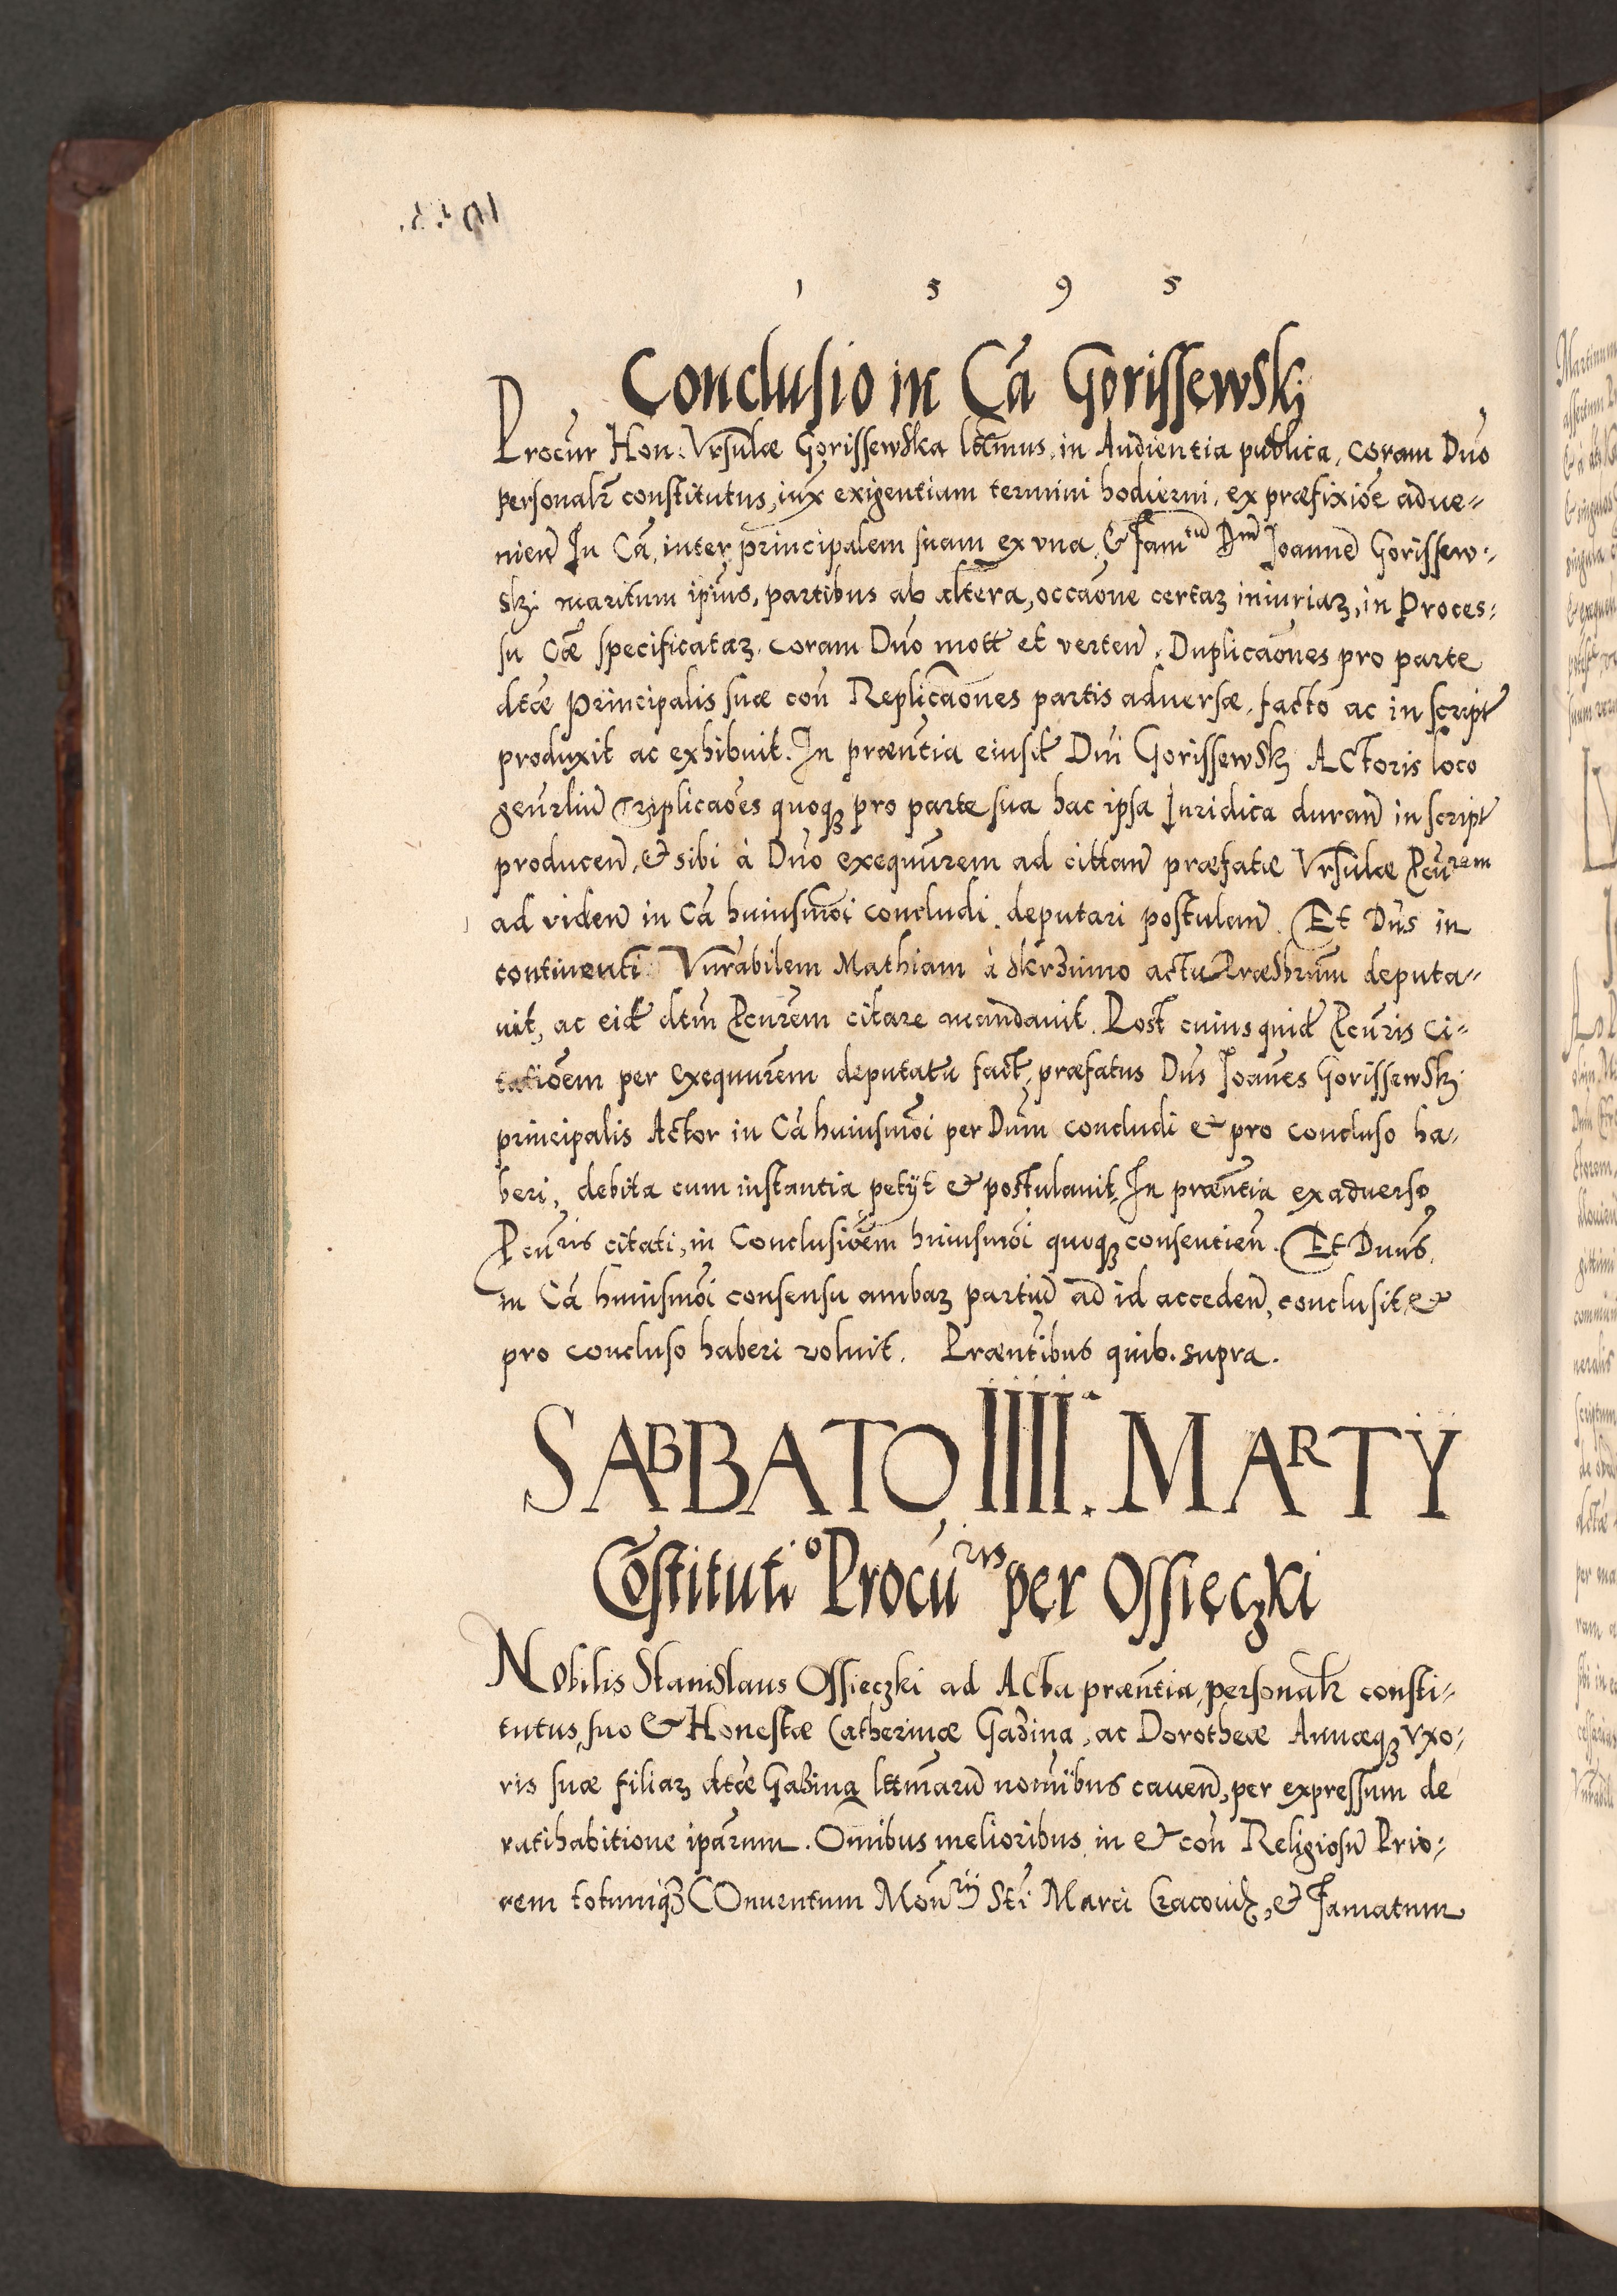 1 5 9 5
Conclusio in Cā Gorissewskį
Procur Hon: Vrsulæ Gorissewska lttimus, in Audientia publica, coram Dno
personalr constitutus, iux exigentiam termini hodierni, ex præfixiōe adue-
nien̄ In Cā, inter principalem suam ex vna, & Famtū Dnū Joannē Gorissew-
ski maritum ipius, partibus ab altera, occāone certaꝝ iniuriaꝝ, in Proces-
su Cæ specificataꝝ, coram Dno mott et verten̄. Duplicāones pro parte
dtæ Principalis suæ con̄ Replicāones partis aduersæ, facto ac in script
produxit ac exhibuit. In præntia eiusd Dni Gorissewskį Actoris loco
genrliū Triplicāoes quoqꝫ pro parte sua hac ipsa Iuridica duran̄ in script
producen̄, & sibi à Dno exequūrem ad cittan̄ præfatæ Vrsulæ Pcūrem
ad viden̄ in Cā huiusmōi concludi, deputari postulan̄. Et Dn̄s in
continenti Vnrabilem Mathiam à Skrzinno actu Præsbrūm deputa-
uit, ac eid dtm̄ Pcurēm citare mandauit. Post cuius quid Pcūris ci-
tatiōem per exequurēm deputatū fact, præfatus Dn̄s Joānes Gorissewskį
principalis Actor in Cā huiusmōi per Dn̄m concludi & pro concluso ha-
beri, debita cum instantia petÿt & postulauit. In præntia ex aduerso
Pcūris citati, in Conclusiōem huiusmōi quoqꝫ consentien̄. Et Dnn̄s
in Cā huiusmōi consensu ambaꝝ partiū ad id acceden̄, conclusit &
pro concluso haberi voluit. Præntibus quib. supra.
SABBATO, IIII.a MARTŸ
Cōstitutio Procūris per Ossięczki
Nobilis Stanislaus Ossieczki ad Acta præntia, personalr consti-
tutus, suo & Honestæ Catherinæ Gadina, ac Dorotheæ Annæqꝫ vxo-
ris suæ filiaꝝ dtæ Gabina lttmarū nomībus cauen̄, per expressum de
ratihabitione ipārum. Omībus melioribus in & con̄ Religiosū Prio-
rem totumqꝫ Conuentum Monrÿ Sti Marci Cracouię, & Famatum